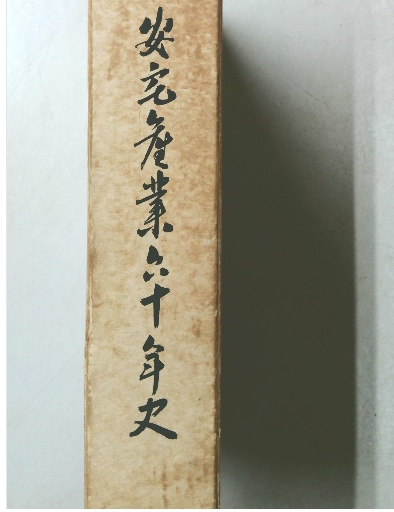 安宅產業六十年史